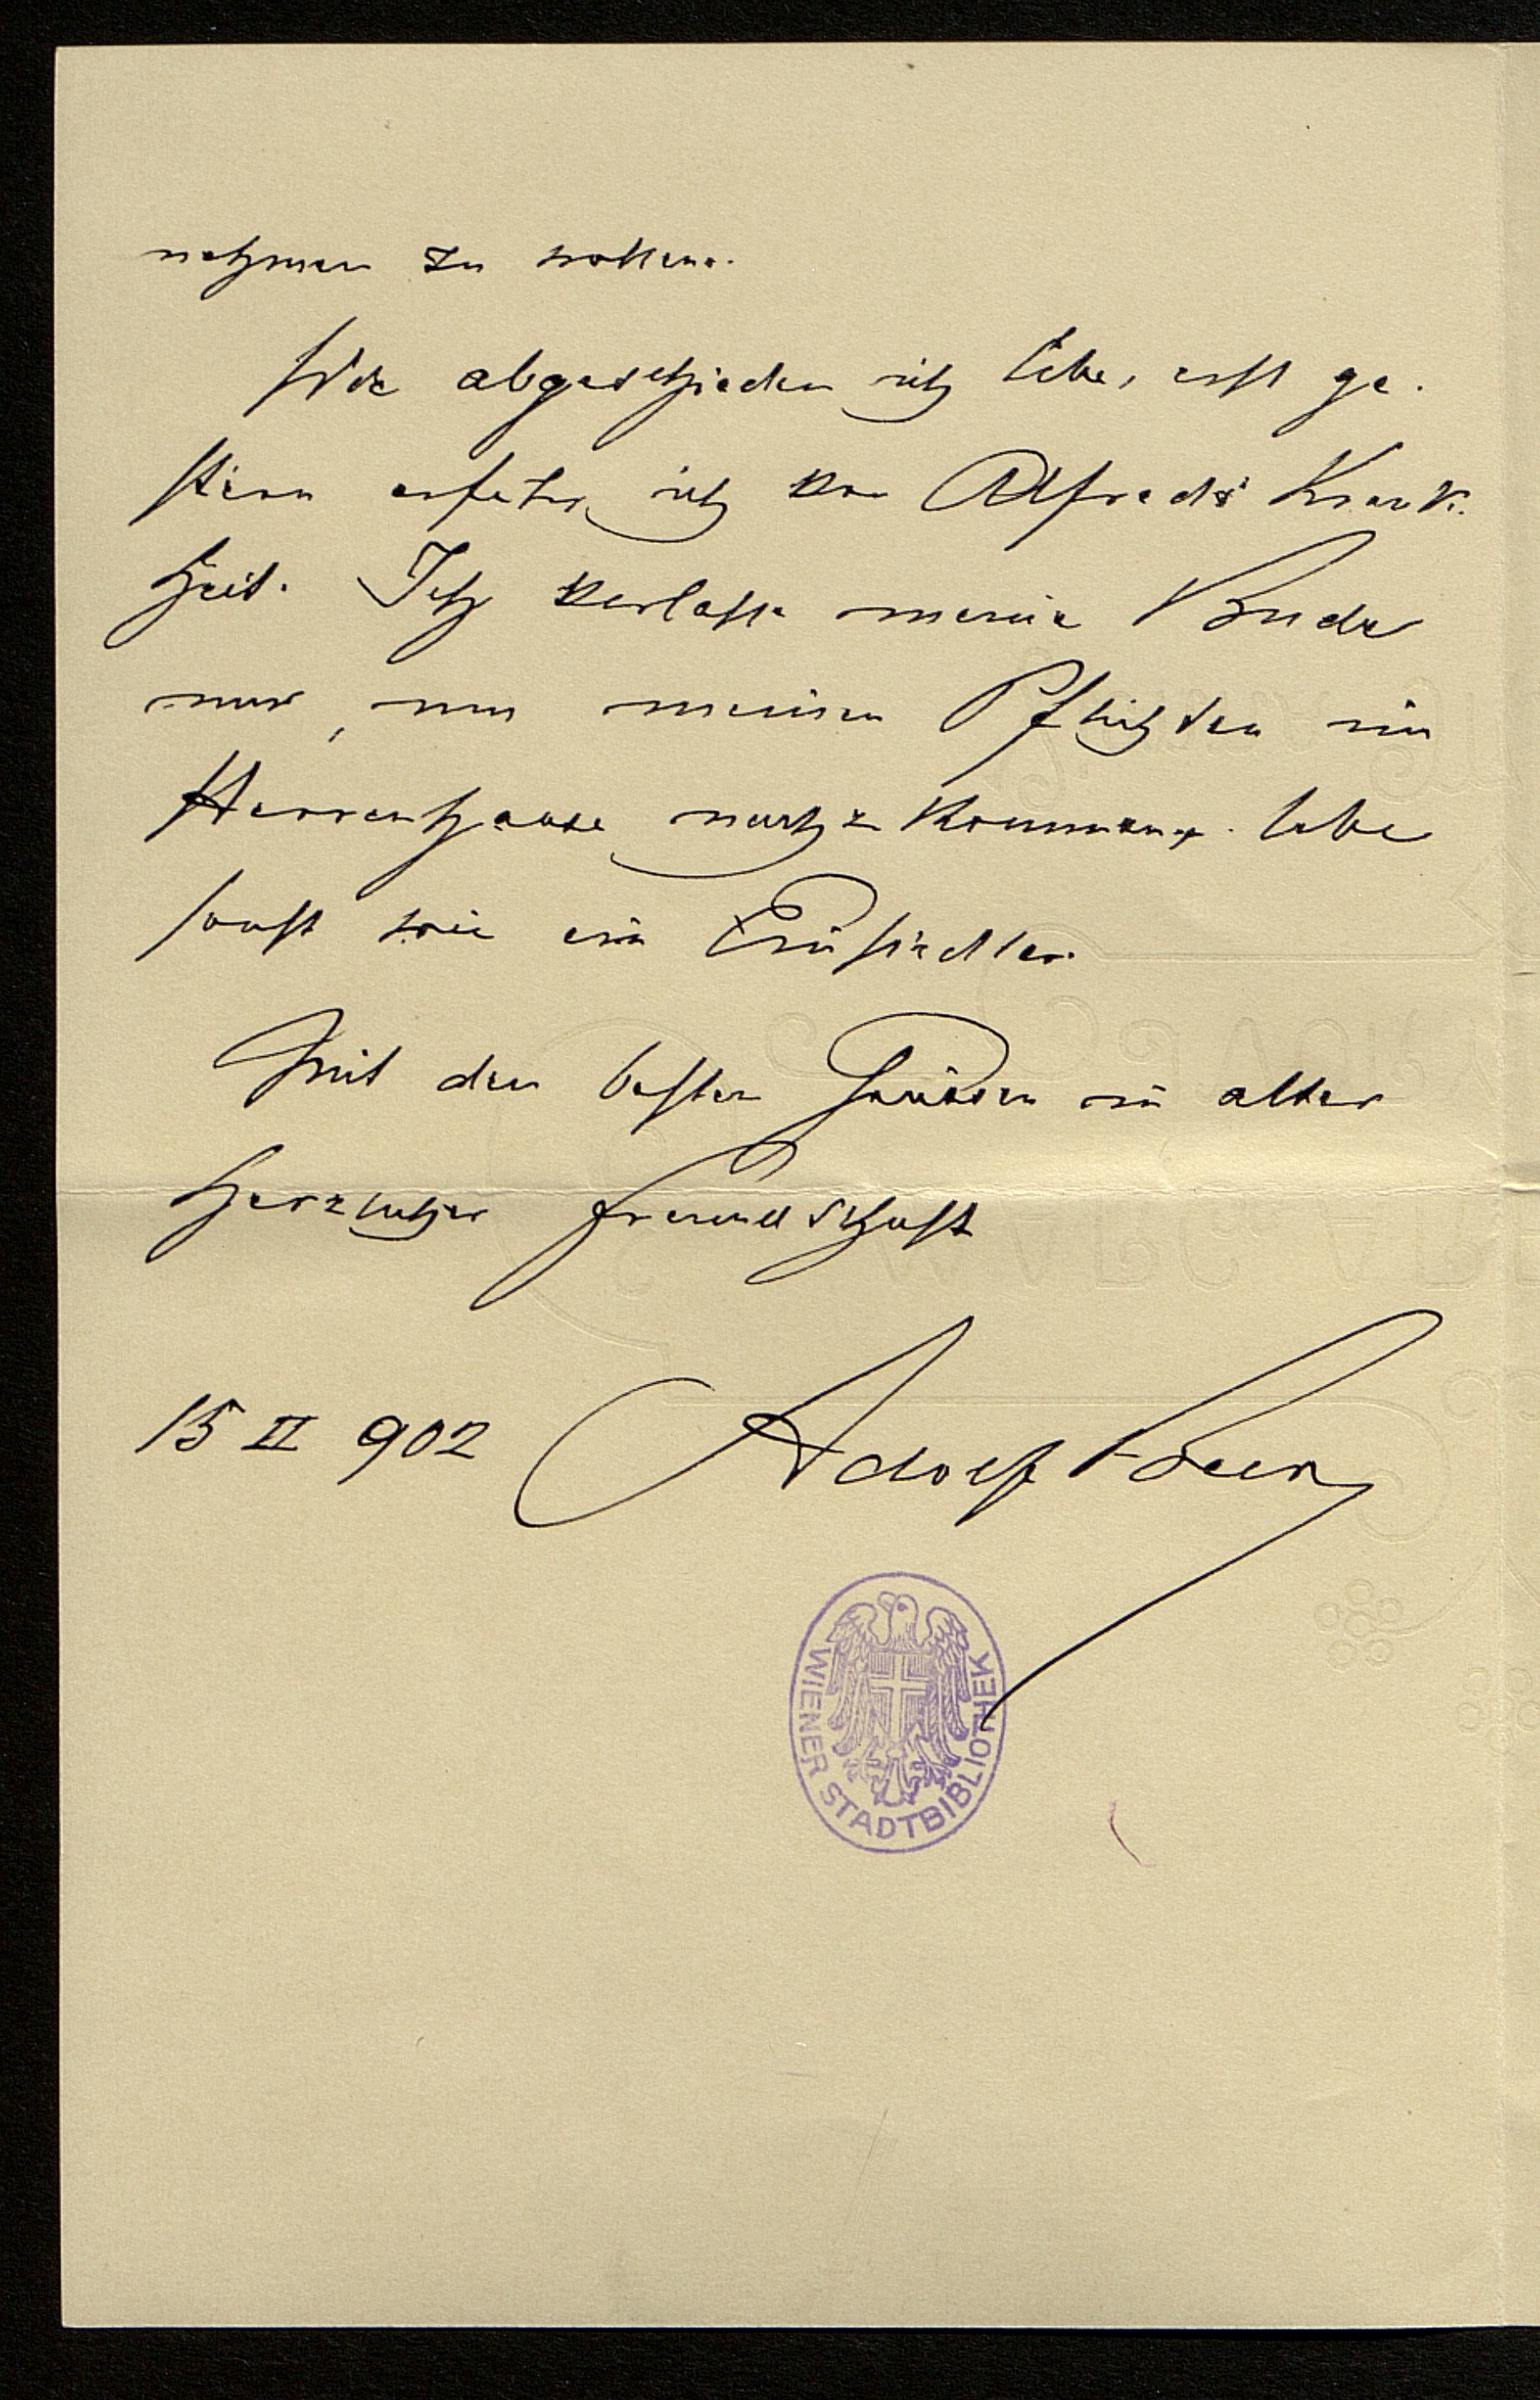 nehmen zu wollen.
Wie abgeschieden ich lebe, erst ge-
stern erfuhr ich von Alfreds Krank-
heit. Ich verlasse meine Bude
nur, um meinen Pflichten im
Herrenhause nachzukommen. lebe
sonst wie ein Einsiedler.
Mit den besten Grüssen in alter
herzlicher Freundschaft
15 II 902 Adolf Beer
WIENER STADTBIBLIOTHEK